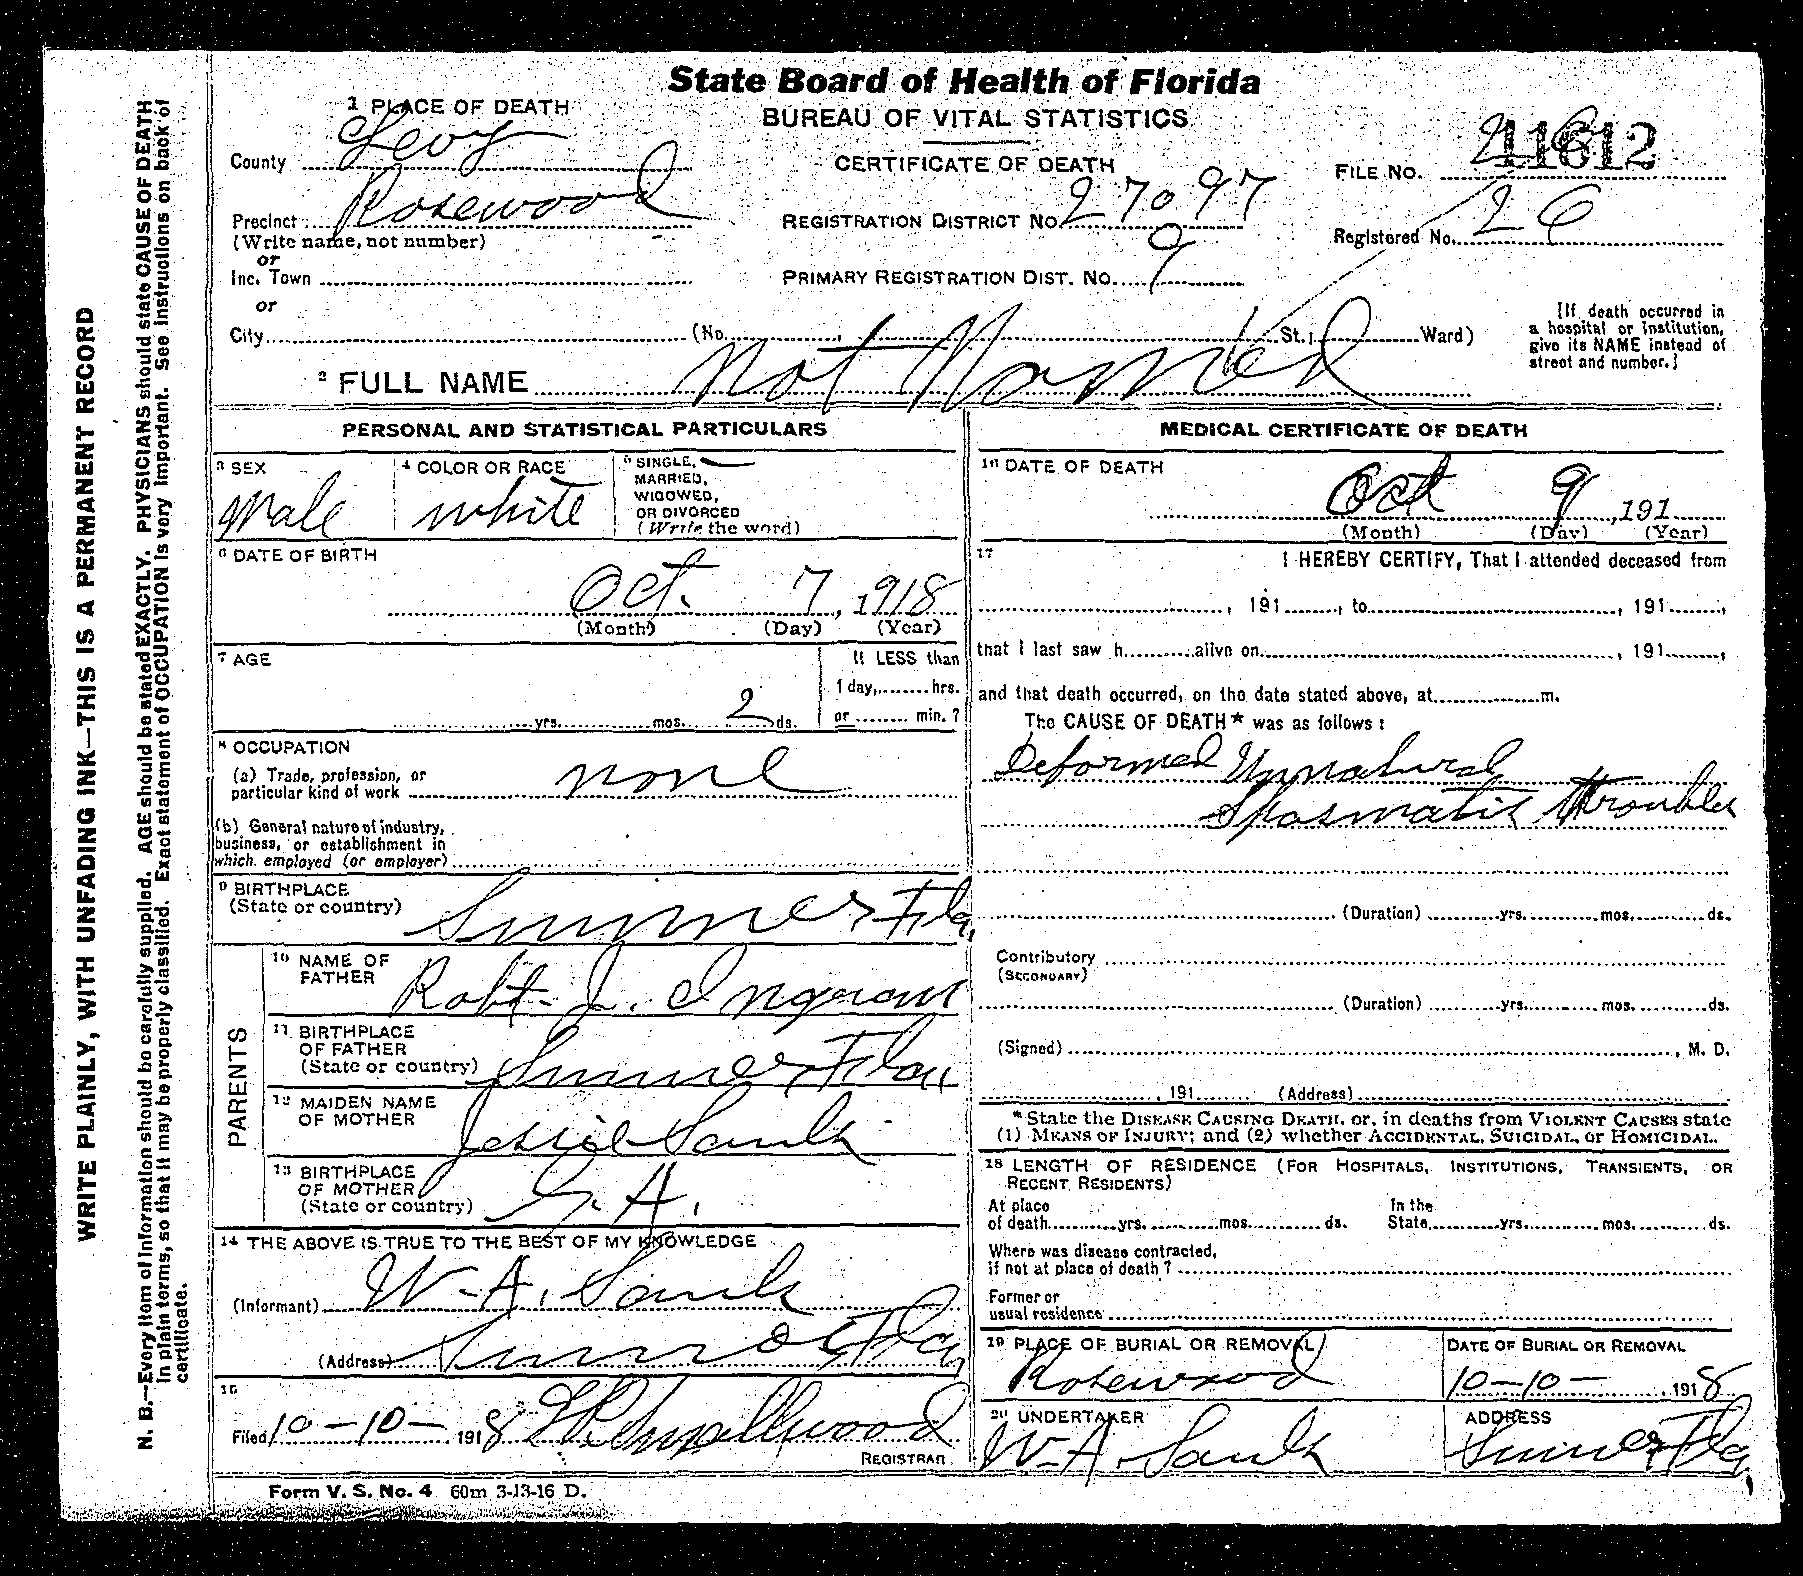 State Board of Health of Florida
BUREAU OF VITAL STATISTICS
CERTIFICATE OF DEATH
1 PLACE OF DEATH
County Levy
Precinct Rosewood
(Write name, not number)
or
Inc. Town
or
City (No. , St.; Ward)
REGISTRATION DISTRICT No. 27097
PRIMARY REGISTRATION DIST. NO. 9
FILE NO. 11612
Registered No. 26
[If death occurred in
a hospital or institution,
give its NAME instead of
street and number.]
2 FULL NAME Not Named
PERSONAL AND STATISTICAL PARTICULARS
3 SEX
Male
4 COLOR OR RACE
White
5 SINGLE,
MARRIED,
WIDOWED,
OR DIVORCED
(Write the word)
6 DATE OF BIRTH
Oct. 7, 1918
(Month) (Day) (Year)
7 AGE
yrs. mos. 2 ds.
If LESS than
1 day, hrs.
or min. ?
8 OCCUPATION
(a) Trade, profession, or
particular kind of work none
(b) General nature of industry,
business, or establishment in
which employed (or employer)
9 BIRTHPLACE
(State or country) Sumner Fla.
PARENTS
10 NAME OF
FATHER Robt. J. Ingram
11 BIRTHPLACE
OF FATHER
(State or country) Sumner, Fla
12 MAIDEN NAME
OF MOTHER Jessie Sauls
13 BIRTHPLACE
OF MOTHER
(State or country) G.A.
14 THE ABOVE IS TRUE TO THE BEST OF MY KNOWLEDGE
(Informant) W.A. Sauls
(Address) Sumner Fla,
15
Filed 10-10-, 1918 Smallwood
REGISTRAR
MEDICAL CERTIFICATE OF DEATH
16 DATE OF DEATH
Oct 9, 191
(Month) (Day) (Year)
17
I HEREBY CERTIFY, That I attended deceased from
, 191 , to , 191 ,
that I last saw h alive on , 191 ,
and that death occurred, on the date stated above, at m.
The CAUSE OF DEATH* was as follows:
Deformed Unnatural
Spasmatic troubles
(Duration) yrs. mos. ds.
Contributory
(SECONDARY)
(Duration) yrs. mos. ds.
(Signed) , M. D.
, 191 (Address)
*State the DISEASE CAUSING DEATH, or, in deaths from VIOLENT CAUSES state
(1) MEANS OF INJURY; and (2) whether ACCIDENTAL, SUICIDAL, or HOMICIDAL.
18 LENGTH OF RESIDENCE (FOR HOSPITALS, INSTITUTIONS, TRANSIENTS, OR
RECENT RESIDENTS)
At place
of death yrs. mos. ds.
In the
State yrs. mos. ds.
Where was disease contracted,
if not at place of death?
Former or
usual residence
19 PLACE OF BURIAL OR REMOVAL
Rosewood
DATE OF BURIAL OR REMOVAL
10-10-, 1918
20 UNDERTAKER
W.A. Sauls
ADDRESS
Sumner Fla,
Form V. S. No. 4 60m 3-13-16 D.
WRITE PLAINLY, WITH UNFADING INK—THIS IS A PERMANENT RECORD
N. B.—Every item of information should be carefully supplied. AGE should be stated EXACTLY. PHYSICIANS should state CAUSE OF DEATH
in plain terms, so that it may be properly classified. Exact statement of OCCUPATION is very important. See instructions on back of
certificate.